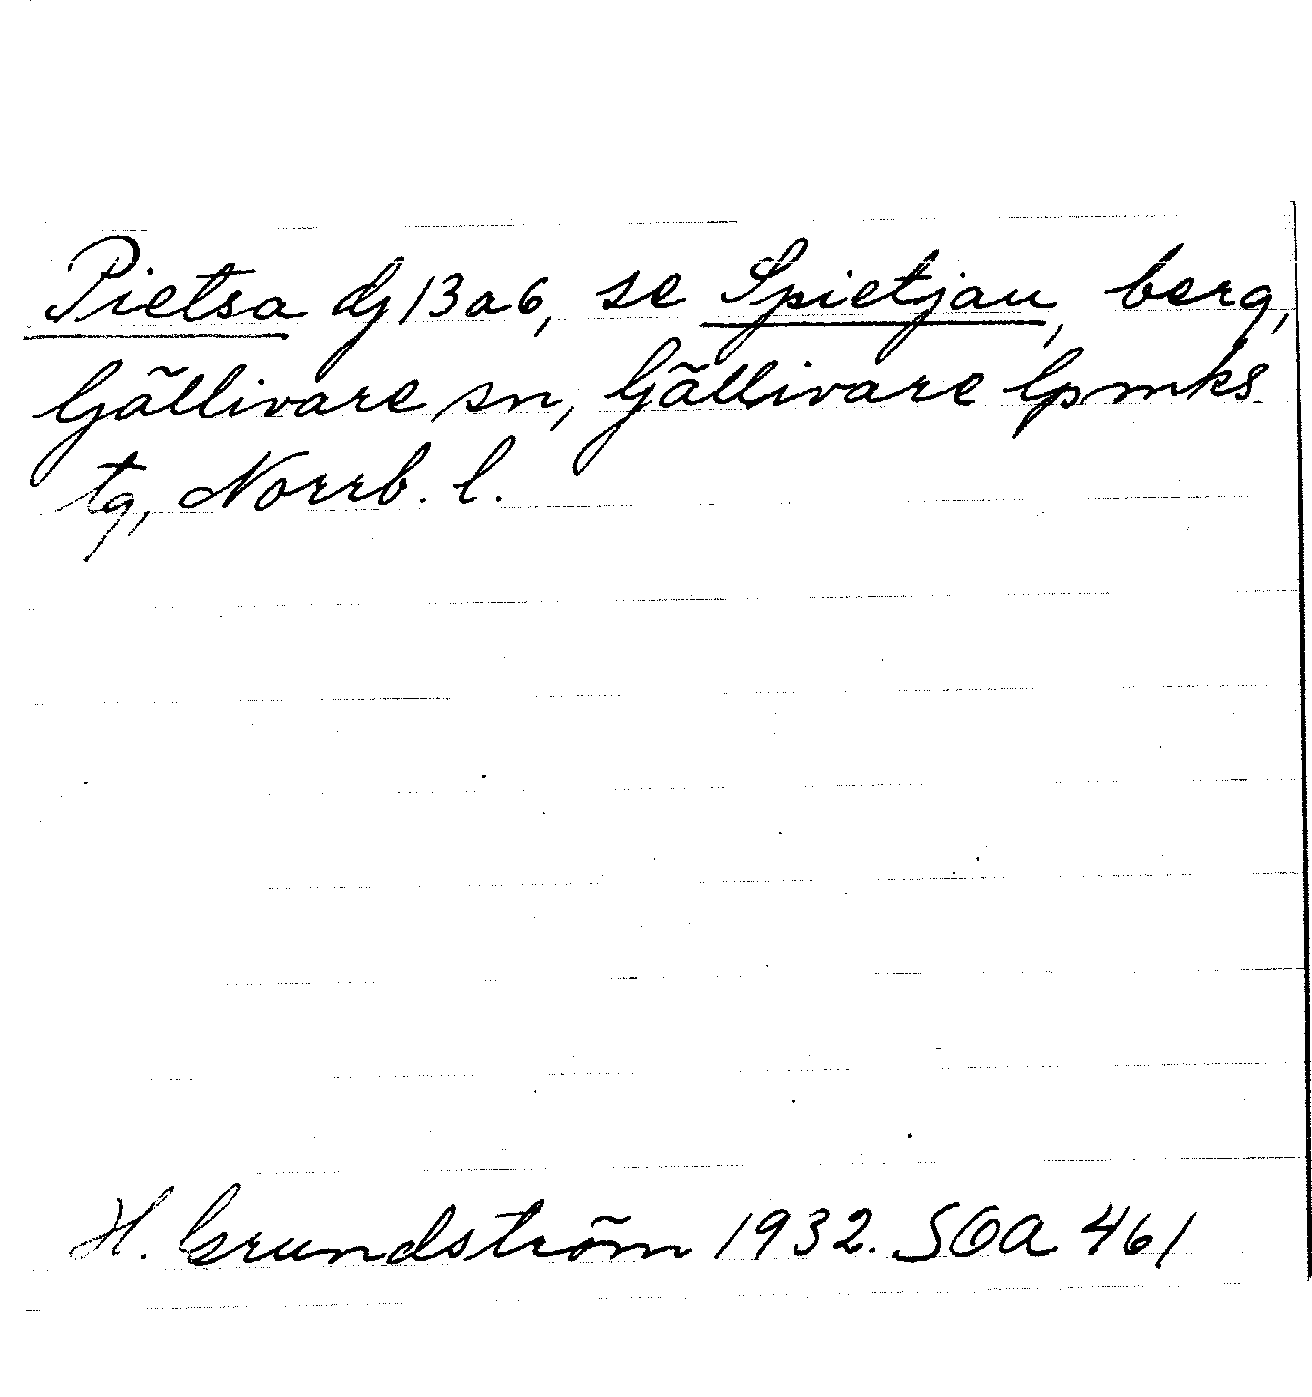 Pietsa dj 13 a 6, se Spietjau, berg,
Gällivare sn, Gällivare lpmks
tg, Norrb. l.
H. Grundström 1932. SOA 461